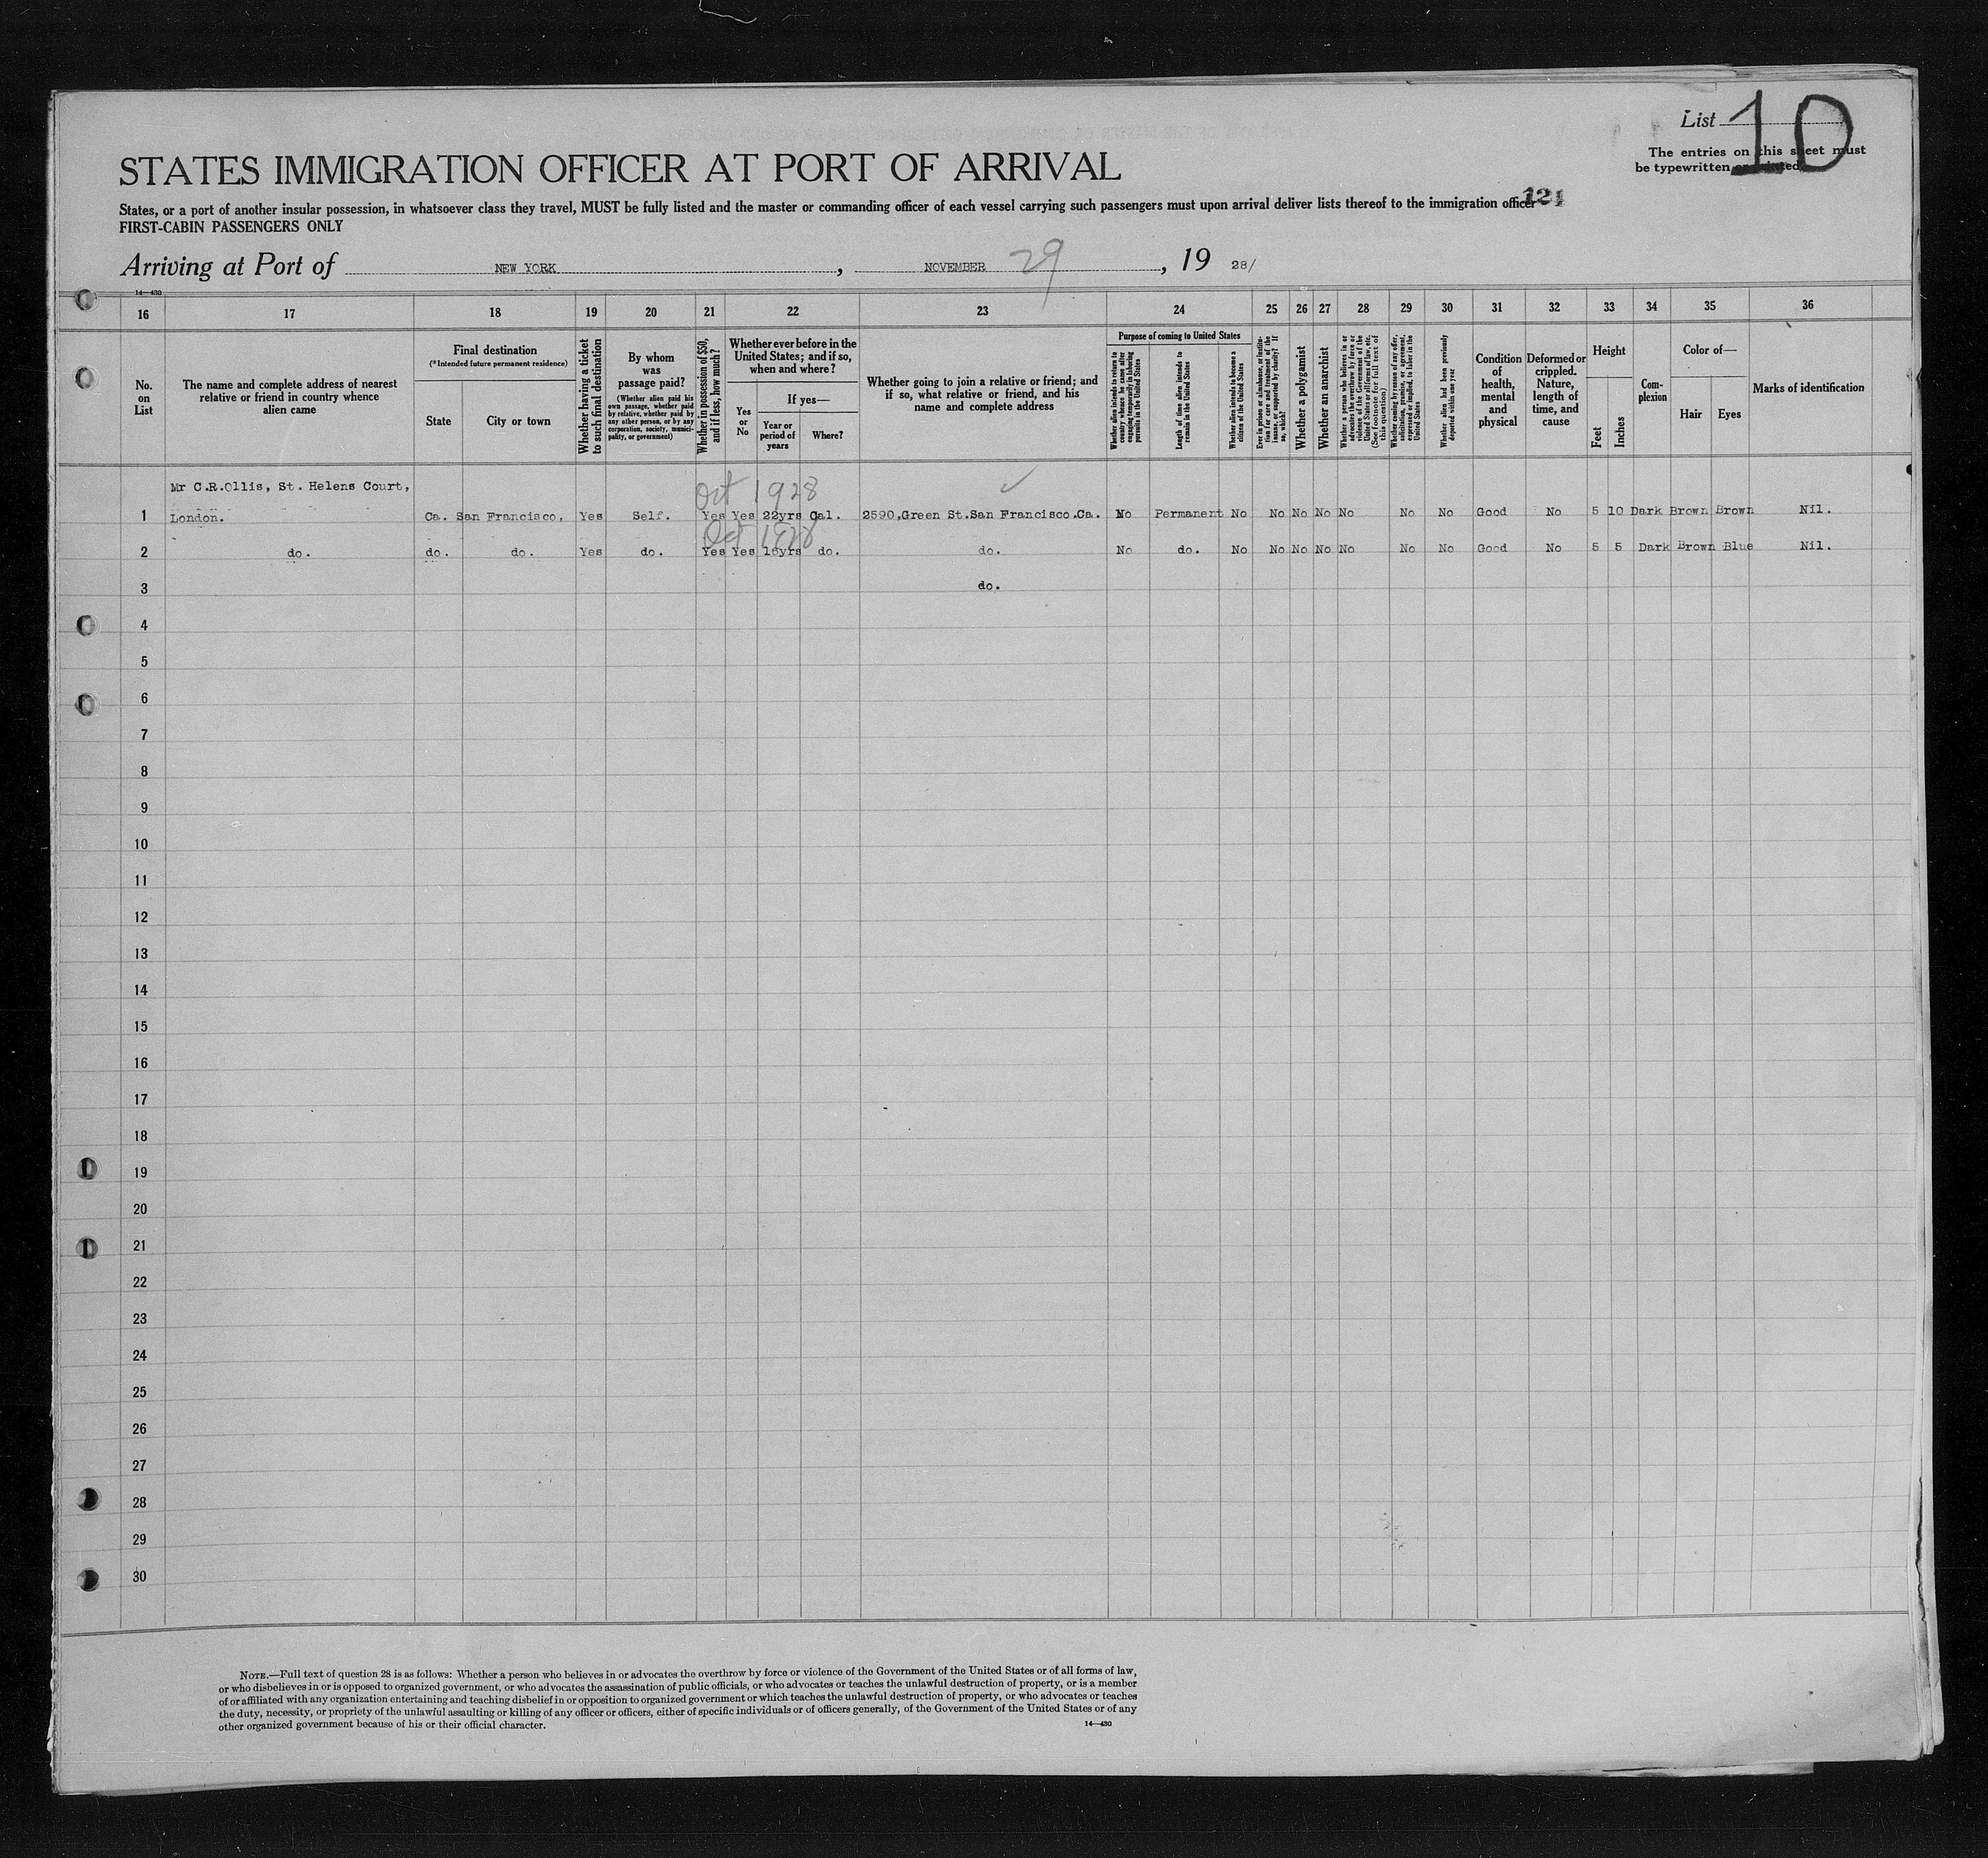 List 10
The entries on this sheet must
be typewritten or printed
STATES IMMIGRATION OFFICER AT PORT OF ARRIVAL
121
States, or a port of another insular possession, in whatsoever class they travel, MUST be fully listed and the master or commanding officer of each vessel carrying such passengers must upon arrival deliver lists thereof to the immigration officer
FIRST-CABIN PASSENGERS ONLY
Arriving at Port of NEW YORK, NOVEMBER 29, 19 28/
14—430
16 17 18 19 20 21 22 23 24 25 26 27 28 29 30 31 32 33 34 35 36
No. on List
The name and complete address of nearest relative or friend in country whence alien came
Final destination
(*Intended future permanent residence)
State
City or town
Whether having a ticket to such final destination
By whom was passage paid?
(Whether alien paid his own passage, whether paid by relative, whether paid by any other person, or by any corporation, society, municipality, or government)
Whether in possession of $50, and if less, how much?
Whether ever before in the United States; and if so, when and where?
Yes or No
If yes—
Year or period of years
Where?
Whether going to join a relative or friend; and if so, what relative or friend, and his name and complete address
Purpose of coming to United States
Whether alien intends to return to country whence he came after engaging temporarily in laboring pursuits in the United States
Length of time alien intends to remain in the United States
Whether alien intends to become a citizen of the United States
Ever in prison or almshouse, or institution for care and treatment of the insane, or supported by charity? If so, which?
Whether a polygamist
Whether an anarchist
Whether a person who believes in or advocates the overthrow by force or violence of the Government of the United States or all forms of law, etc. (See footnote for full text of this question)
Whether coming by reason of any offer, solicitation, promise, or agreement, expressed or implied, to labor in the United States
Whether alien had been previously deported within one year
Condition of health, mental and physical
Deformed or crippled. Nature, length of time, and cause
Height
Feet
Inches
Complexion
Color of—
Hair
Eyes
Marks of identification
Oct 1928
Mr C.R.Ollis, St. Helens Court,
1 London. Ca. San Francisco, Yes Self. Yes Yes 22yrs Cal. 2590,Green St.San Francisco.Ca. No Permanent No No No No No No No Good No 5 10 Dark Brown Brown Nil.
Oct 1928
2 do. do. do. Yes do. Yes Yes 16yrs do. do. No do. No No No No No No No Good No 5 5 Dark Brown Blue Nil.
3 do.
4
5
6
7
8
9
10
11
12
13
14
15
16
17
18
19
20
21
22
23
24
25
26
27
28
29
30
NOTE.—Full text of question 28 is as follows: Whether a person who believes in or advocates the overthrow by force or violence of the Government of the United States or of all forms of law,
or who disbelieves in or is opposed to organized government, or who advocates the assassination of public officials, or who advocates or teaches the unlawful destruction of property, or is a member
of or affiliated with any organization entertaining and teaching disbelief in or opposition to organized government or which teaches the unlawful destruction of property, or who advocates or teaches
the duty, necessity, or propriety of the unlawful assaulting or killing of any officer or officers, either of specific individuals or of officers generally, of the Government of the United States or of any
other organized government because of his or their official character.
14—430